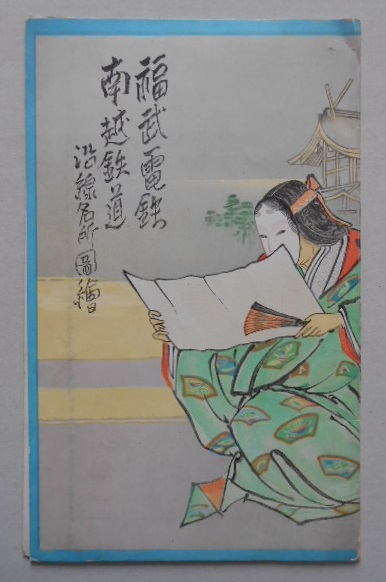 福武電鉄
南越鉄道
沿線名所圖繪